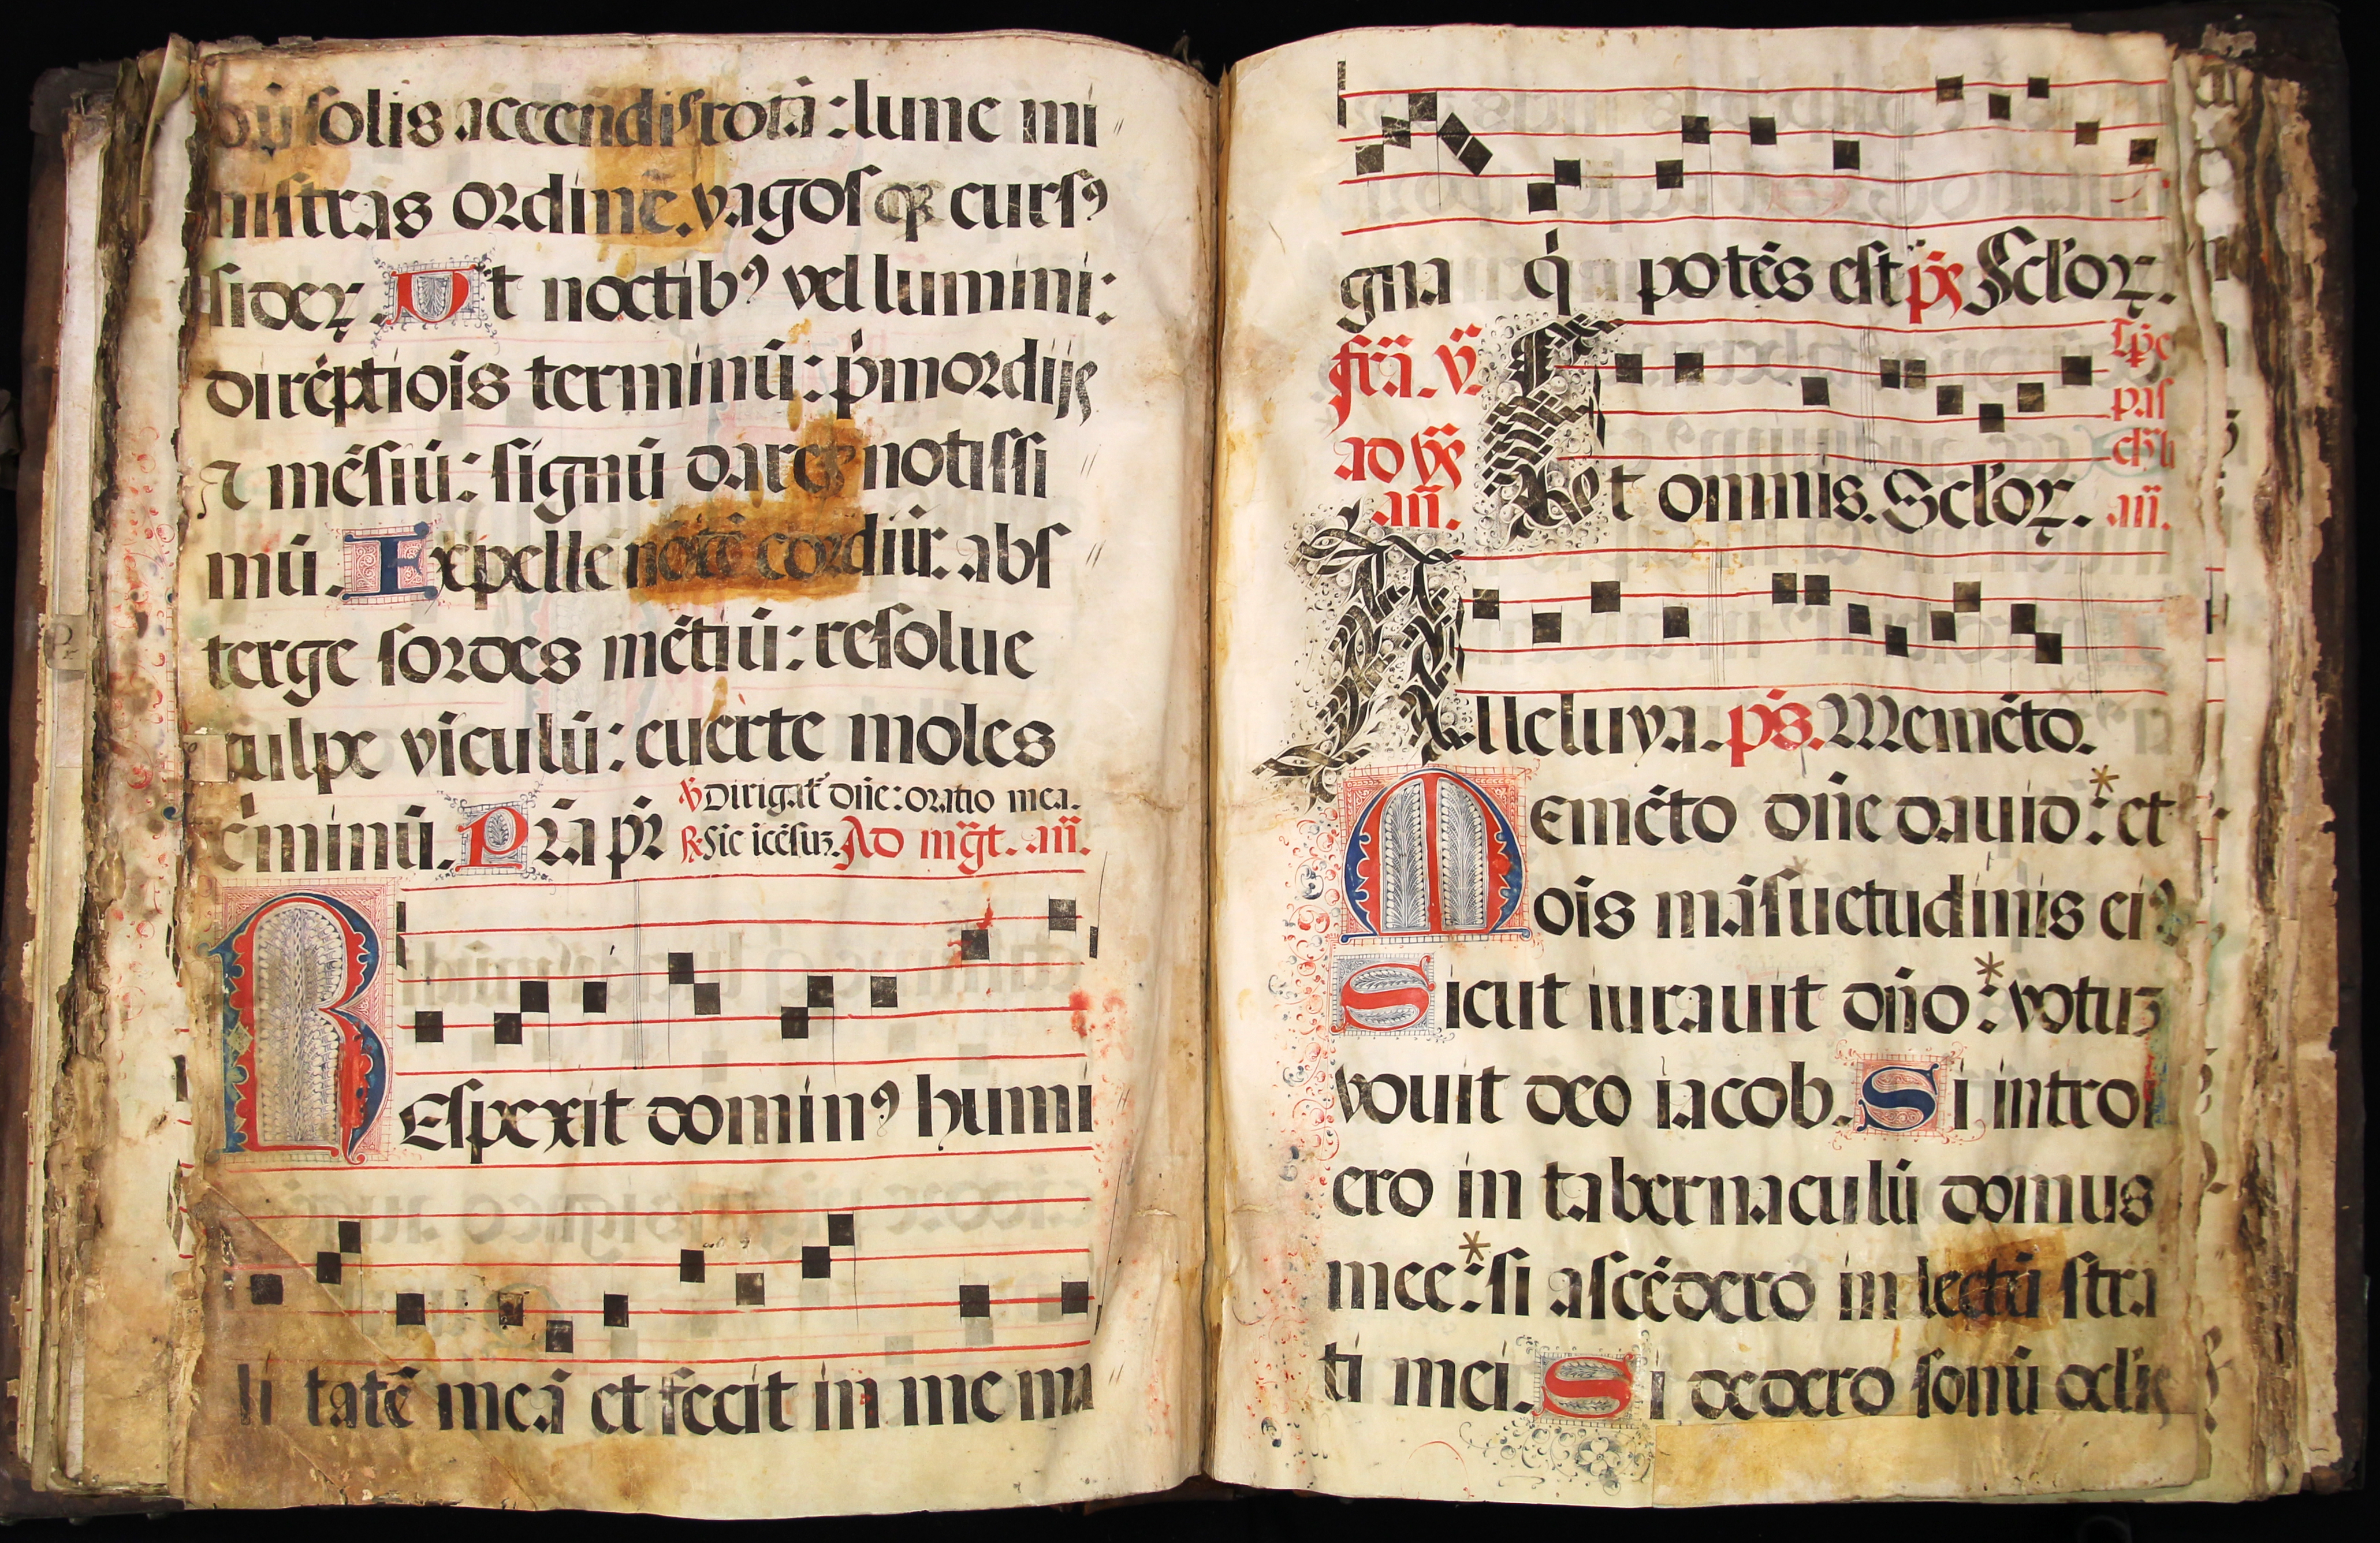 solis accendis rotā: lune mi
nistras ordinē. vagosqꝫ cursꝰ
siderꝝ. Ut noctibꝰ vel luminū:
direptiōis terminū: pͥmordijs
⁊ mēsiū: signū daret notissi
mū. Expelle noctē cordiū: abs
terge sordes mētiū: resolue
culpe vīculū: euerte moles
cͥminū. Pr̄a pr̄
℣ Dirigat͛ dn̄e: oratio mea.
℟ Sic īcēsuꝫ. Ad mḡt. an̄.
Respexit dominꝰ humi
li tatē meā et fecit in me ma
gna qͥ potēs est ps̄ Scl̓oꝝ.
fr̄a. v̄.
ad vs̄
an̄.
Et omnis. Scl̓oꝝ.
tp̄e
pas
chali
an̄.
Alleluya. ps̄. Memēto.
Memēto dn̄e dauid: * et
oīs māsuetudinis eiꝰ
Sicut iurauit dn̄o: * votuꝫ
vouit deo iacob. Si introi
ero in tabernaculū domus
mee: * si ascēdero in lectū stra
ti mei. Si dedero sonū oclīs